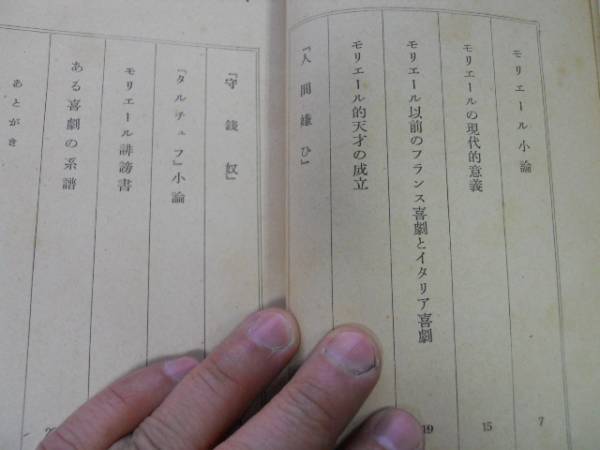 モリエール小論 7
モリエールの現代的意義 15
モリエール以前のフランス喜劇とイタリア喜劇 19
モリエール的天才の成立
『人間嫌ひ』
『守銭奴』
『タルチュフ』小論
モリエール誹謗書
ある喜劇の系譜
あとがき